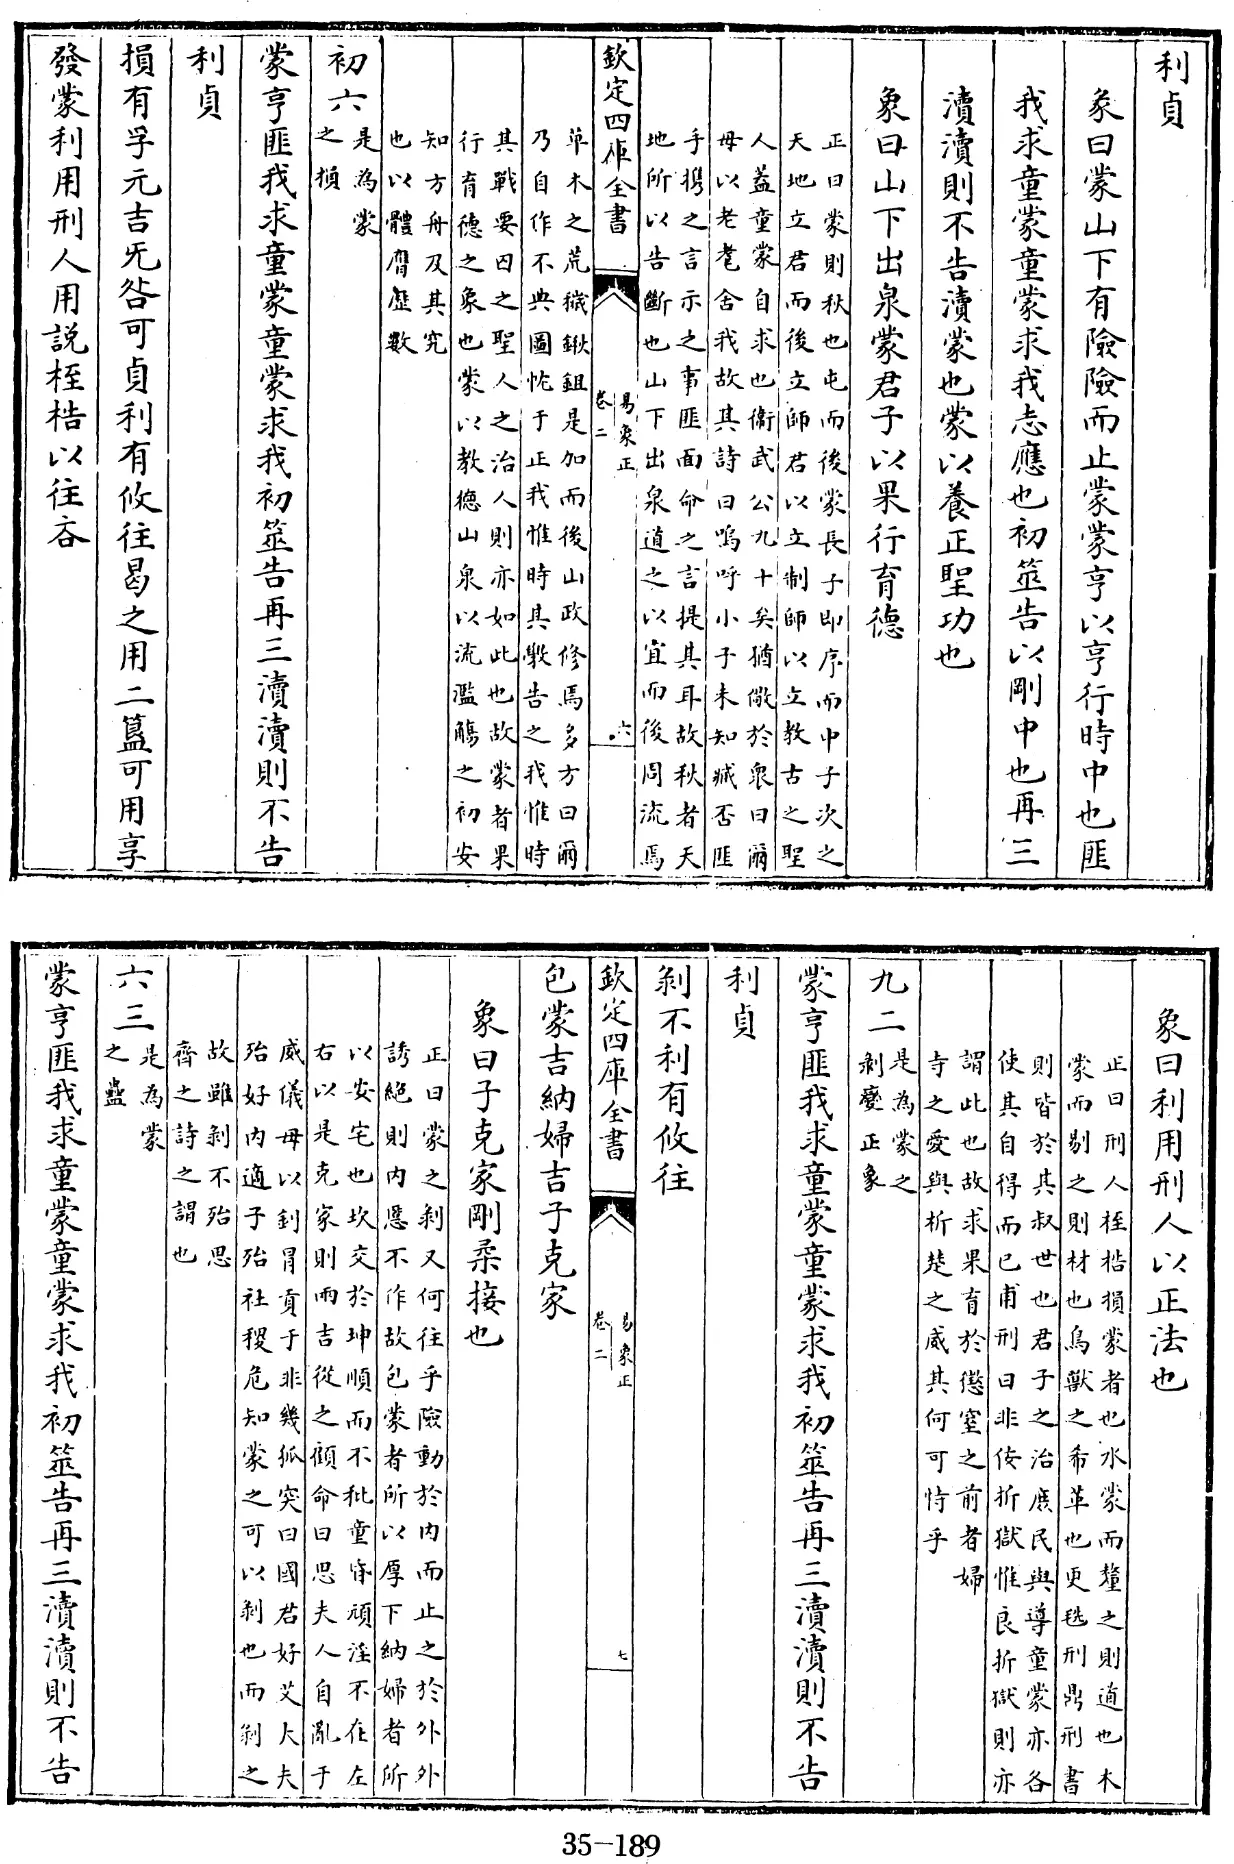 利貞
彖曰蒙山下有險險而止蒙蒙亨以亨行時中也匪
我求童蒙童蒙求我志應也初筮告以剛中也再三
瀆瀆則不告瀆蒙也蒙以養正聖功也
象曰山下出泉蒙君子以果行育德
正曰蒙則秋也屯而後蒙長子即序而中子次之
天地立君而後立師君以立制師以立教古之聖
人蓋童蒙自求也衞武公九十矣猶儆於衆曰爾
毋以老耄舍我故其詩曰嗚呼小子未知臧否匪
手携之言示之事匪面命之言提其耳故秋者天
地所以告斷也山下出泉道之以宜而後周流焉
欽定四庫全書
易象正
卷二
六
草木之荒穢鍬鉏是加而後山政修焉多方曰爾
乃自作不典圖忱于正我惟時其教告之我惟時
其戰要囚之聖人之治人則亦如此也故蒙者果
行育德之象也蒙以教德山泉以流濫觴之初安
知方舟及其究
也以體膺歷數
初六
是為蒙
之損
蒙亨匪我求童蒙童蒙求我初筮告再三瀆瀆則不告
利貞
損有孚元吉旡咎可貞利有攸往曷之用二簋可用享
發蒙利用刑人用説桎梏以往吝
象曰利用刑人以正法也
正曰刑人桎梏損蒙者也水蒙而釐之則道也木
蒙而剔之則材也鳥獸之希革也更毨刑鼎刑書
則皆於其叔世也君子之治庶民與導童蒙亦各
使其自得而已甫刑曰非佞折獄惟良折獄則亦
謂此也故求果育於懲窒之前者婦
寺之愛與析楚之威其何可恃乎
九二
是為蒙之
剝變正象
蒙亨匪我求童蒙童蒙求我初筮告再三瀆瀆則不告
利貞
剝不利有攸往
欽定四庫全書
易象正
卷二
七
包蒙吉納婦吉子克家
象曰子克家剛柔接也
正曰蒙之剝又何往乎險動於内而止之於外外
誘絶則内慝不作故包蒙者所以厚下納婦者所
以安宅也坎交於坤順而不枇童昏頑淫不在左
右以是克家則兩吉從之顧命曰思夫人自亂于
威儀毋以釗冒貢于非幾狐突曰國君好艾大夫
殆好内適子殆社稷危知蒙之可以剝也而剝之
故雖剝不殆思
齊之詩之謂也
六三
是為蒙
之蠱
蒙亨匪我求童蒙童蒙求我初筮告再三瀆瀆則不告
35-189